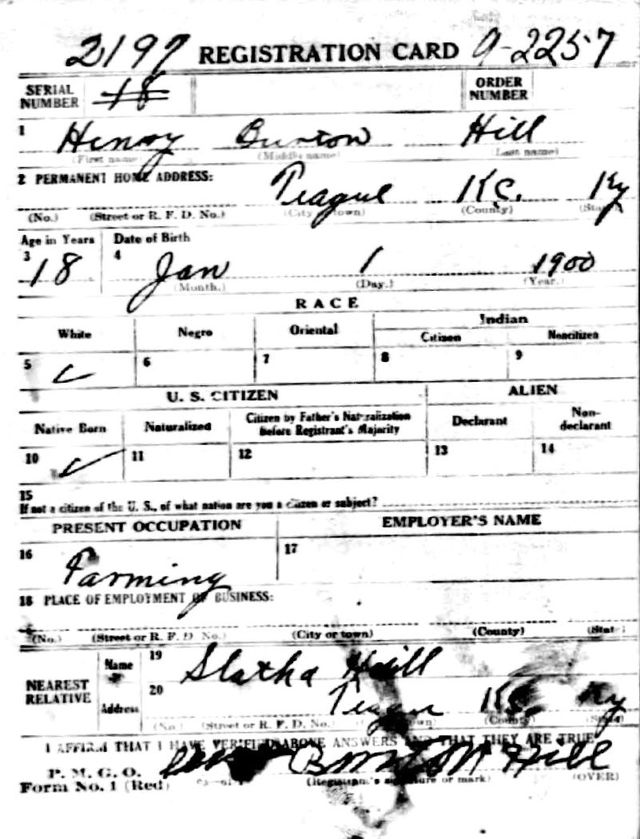 2197 REGISTRATION CARD 9-2257
SERIAL NUMBER 18 ORDER NUMBER
1 Henry Burton Hill
(First name) (Middle name) (Last name)
2 PERMANENT HOME ADDRESS: Teague Ky
(No.) (Street or R. F. D. No.) (City or town) (County) (State)
Age in Years Date of Birth
3 18 4 Jan 1 1900
(Month.) (Day.) (Year.)
RACE
White Negro Oriental Indian
Citizen Noncitizen
5 6 7 8 9
U. S. CITIZEN ALIEN
Native Born Naturalized Citizen by Father's Naturalization Before Registrant's Majority Declarant Non-declarant
10 11 12 13 14
15
If not a citizen of the U. S., of what nation are you a citizen or subject?
PRESENT OCCUPATION EMPLOYER'S NAME
16 Farming 17
18 PLACE OF EMPLOYMENT OF BUSINESS:
(No.) (Street or R. F. D. No.) (City or town) (County) (State)
NEAREST RELATIVE Name 19 Hill
Address 20 Ky
(No.) (Street or R. F. D. No.) (City or town) (County) (State)
I AFFIRM THAT I HAVE VERIFIED ABOVE ANSWERS AND THAT THEY ARE TRUE
P. M. G. O.
Form No. 1 (Red) Hill
(Registrant's signature or mark) (OVER)